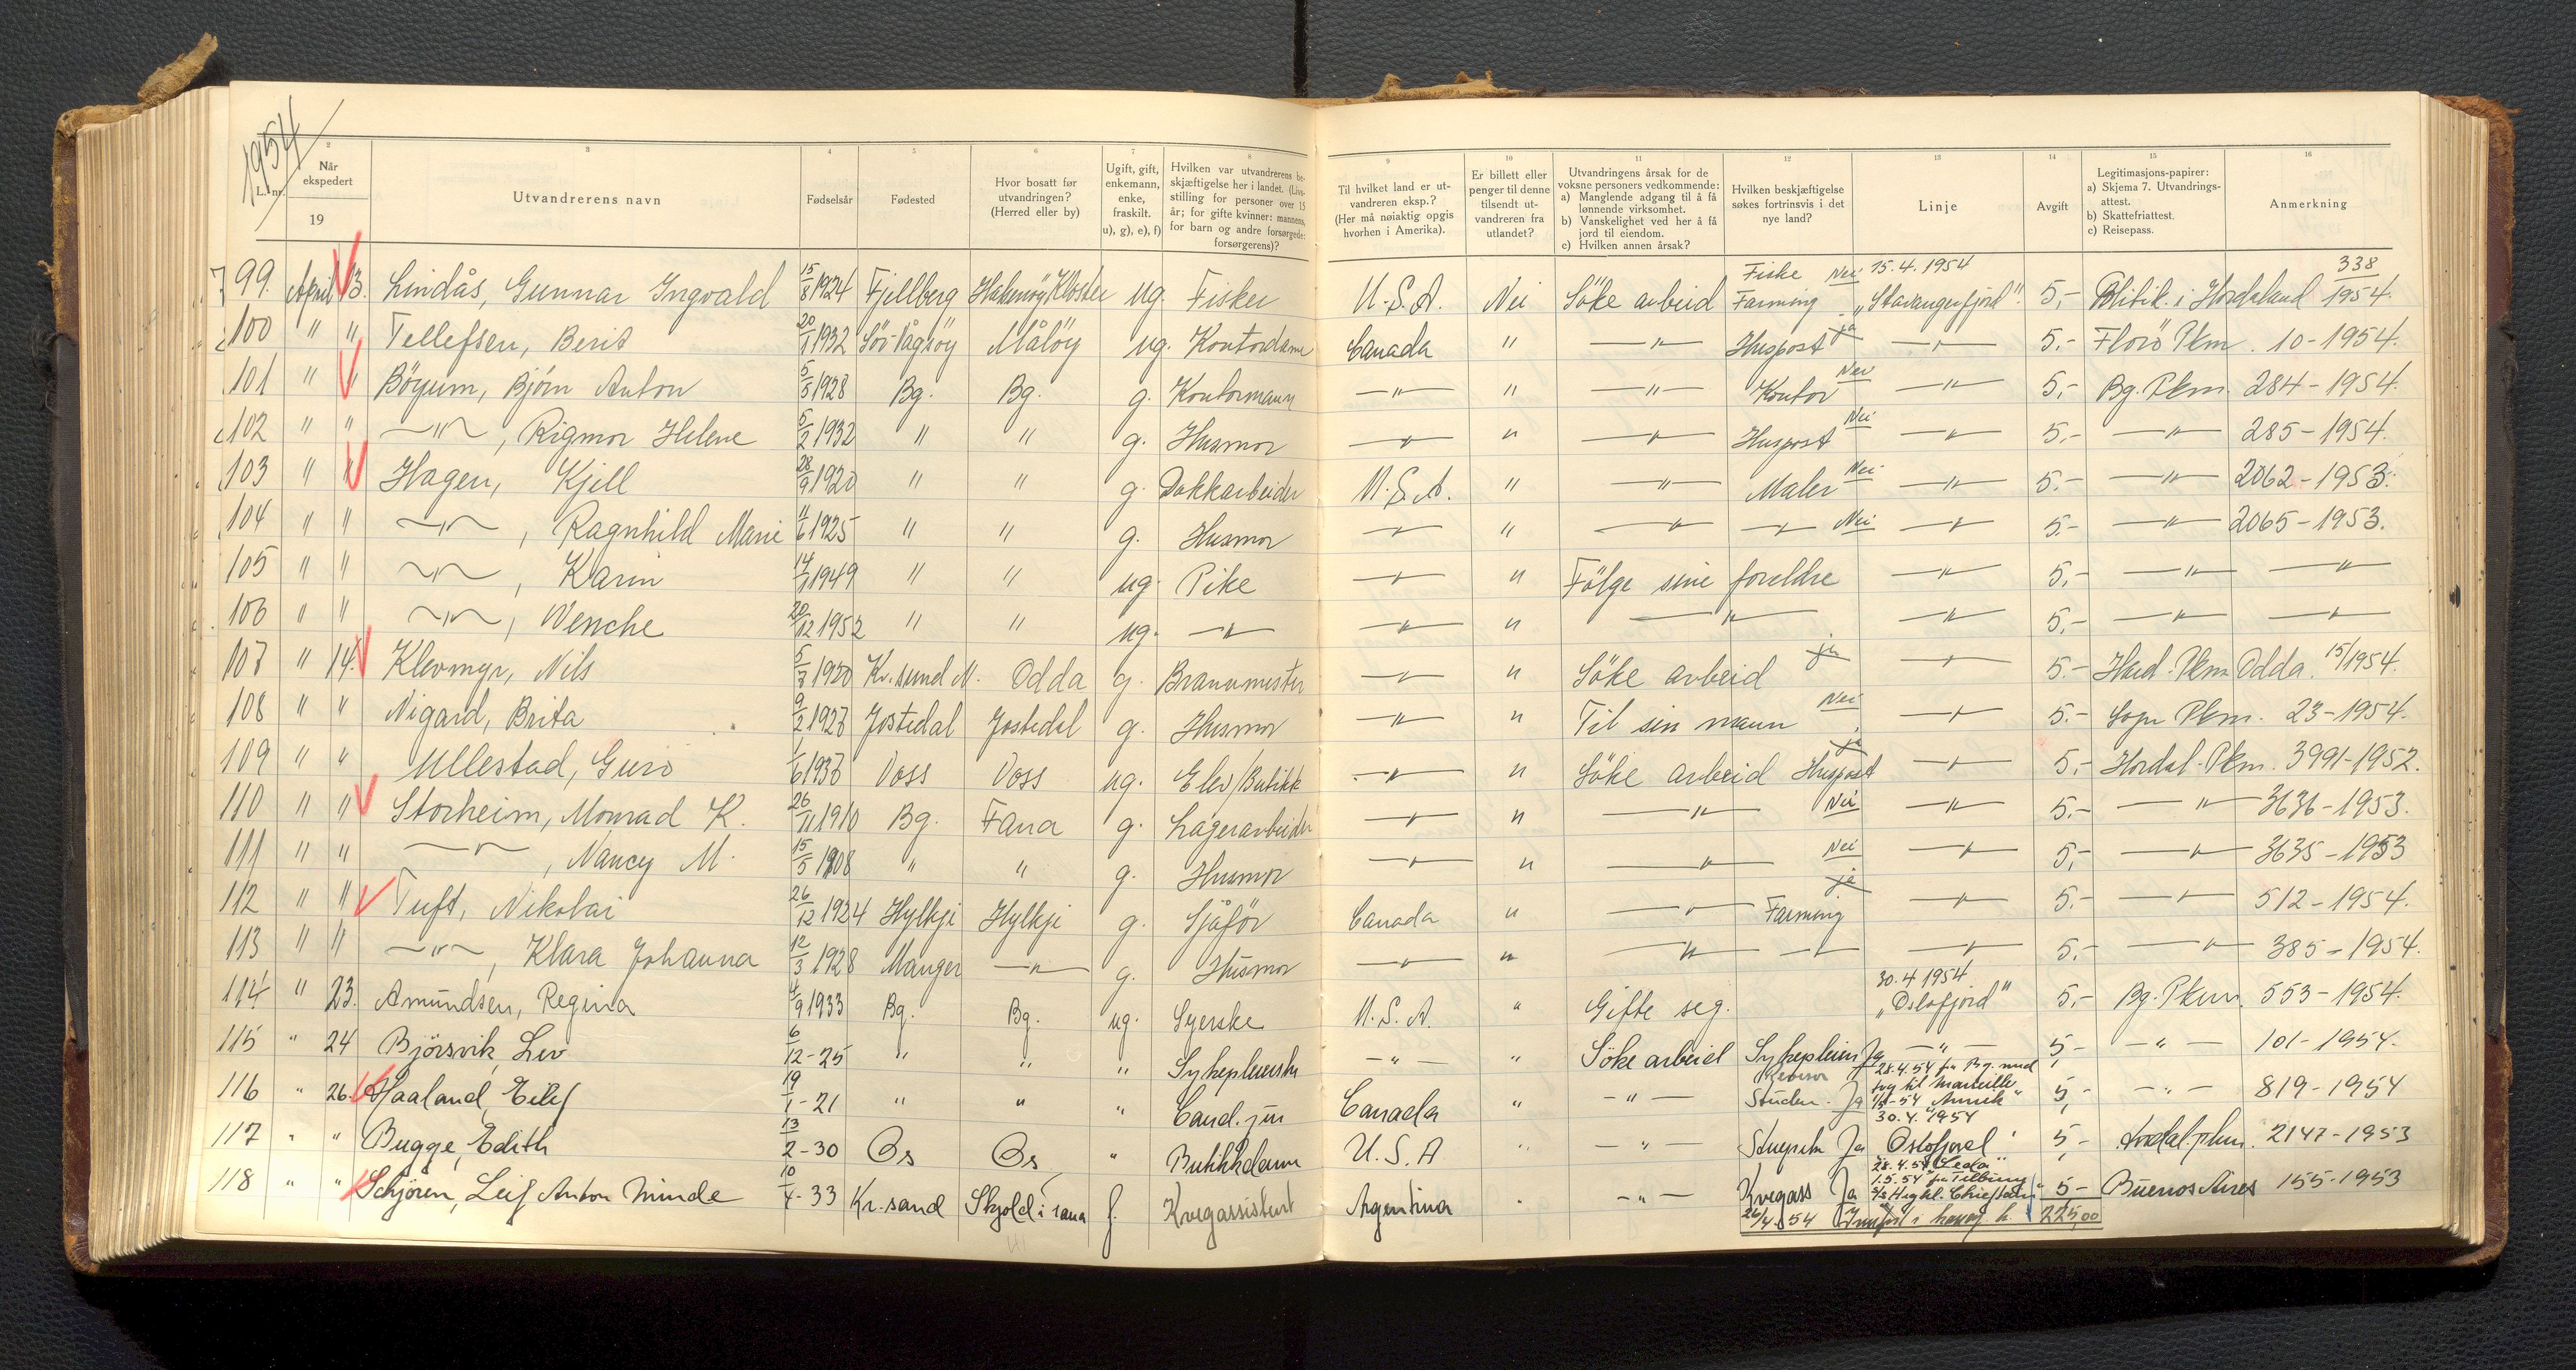 1954
L. nr.
2
Når ekspedert
19
3
Utvandrerens navn
4
Fødselsår
5
Fødested
6
Hvor bosatt før utvandringen? (Herred eller by)
7
Ugift, gift, enkemann, enke, fraskilt. u), g), e), f)
8
Hvilken var utvandrerens beskjæftigelse her i landet. (Livsstilling for personer over 15 år; for gifte kvinner: mannens, for barn og andre forsørgede: forsørgerens)?
9
Til hvilket land er utvandreren eksp.? (Her må nøiaktig opgis hvorhen i Amerika).
10
Er billett eller penger til denne tilsendt utvandreren fra utlandet?
11
Utvandringens årsak for de voksne personers vedkommende:
a) Manglende adgang til å få lønnende virksomhet.
b) Vanskelighet ved her å få jord til eiendom.
c) Hvilken annen årsak?
12
Hvilken beskjæftigelse søkes fortrinsvis i det nye land?
13
Linje
14
Avgift
15
Legitimasjons-papirer:
a) Skjema 7. Utvandringsattest.
b) Skattefriattest.
c) Reisepass.
16
Anmerkning
99. April 13. Lindås, Gunnar Ingvald 15/8 1924 Fjellberg Halsnöy Kloster ug. Fisker U.S.A. Nei Söke arbeid Fiske Farming Nei 15.4.1954 „Stavangerfjord". 5,- Politik. i Hordaland 338/1954.
100 " " Tellefsen, Berit 20/1 1932 Sör-Vågsöy Målöy ug. Kontordame Canada " —"— Huspost ja —"— 5.- Florö Pkm. 10-1954.
101 " " Böyum, Björn Anton 5/5 1928 Bg. Bg. g. Kontormann —"— " —"— Kontor Nei —"— 5,- Bg. Pkm. 284-1954.
102 " " —"—, Rigmor Helene 5/2 1932 " " g. Husmor —"— " —"— Huspost Nei —"— 5,- —"— 285-1954.
103 " " Hagen, Kjell 28/9 1920 " " g. Dokkarbeider U.S.A. " —"— Maler Nei —"— 5.- —"— 2062-1953.
104 " " —"—, Ragnhild Marie 11/6 1925 " " g. Husmor —"— " —"— —"— Nei —"— 5.- —"— 2065-1953.
105 " " —"—, Karin 14/1 1949 " " ug. Pike —"— " Fölge sine foreldre —"— 5,- —"— —"—
106 " " —"—, Wenche 20/12 1952 " " ug. —"— —"— " —"— —"— 5,- —"— —"—
107 " 14. Klevmyr, Nils 5/7 1920 Kr.sund N. Odda g. Brannmester —"— " Söke arbeid ja —"— 5.- Hard. Pkm Odda. 15/1954.
108 " " Nigard, Brita 9/2 1927 Jostedal Jostedal g. Husmor —"— " Til sin mann Nei —"— 5.- Sogn Pkm. 23-1954.
109 " " Ullestad, Guro 1/6 1937 Voss Voss ug. Elev/Butikk —"— " Söke arbeid Huspost ja —"— 5,- Hordal. Pkm. 3991-1952.
110 " " Storheim, Monrad K. 26/11 1910 Bg. Fana g. Lagerarbeider —"— " —"— Nei —"— 5,- —"— 3636-1953.
111 " " —"—, Nancy M. 15/5 1908 " " g. Husmor —"— " —"— Nei —"— 5,- —"— 3635-1953
112 " " Tuft, Nikolai 26/12 1924 Hylkje Hylkje g. Sjåför Canada " —"— Farming ja —"— 5.- —"— 512-1954.
113 " " —"—, Klara Johanna 12/3 1928 Manger —"— g. Husmor —"— " —"— —"— —"— 5.- —"— 385-1954.
114 " 23. Amundsen, Regina 4/9 1933 Bg. Bg. ug. Syerske U.S.A. " Gifte seg. 30.4 1954 „Oslofjord" 5,- Bg. Pkm. 553-1954.
115 " 24 Björsvik, Liv 6/12-25 " " " Sykepleierske —"— " Söke arbeid Sykepleier Ja —"— 5- —"— 101-1954.
116 " 26. Haaland, Eilef 19/1-21 " " " Cand. jur Canada " —"— Ja 28.4.54 fra Bg. med tog til Marseille 30.4.1954 5,- —"— 819-1954
117 " " Bugge, Edith 13/2-30 Os Os " Butikkdame U.S.A " —"— Ja Oslofjord 5,- Hordal. pkm. 2147-1953
118 " " Schjören, Leif Anton Minde 10/4-33 Kr.sand Skjold i Fana f. Kvegassistent Argentina " —"— Kvegass Ja 28.4.54 „Leda" 1.5.54 fra Tilbury S/S Highl. Chieftain" 5- Buenos Aires 155-1953
26/4 54 Innført i kr. 225,00